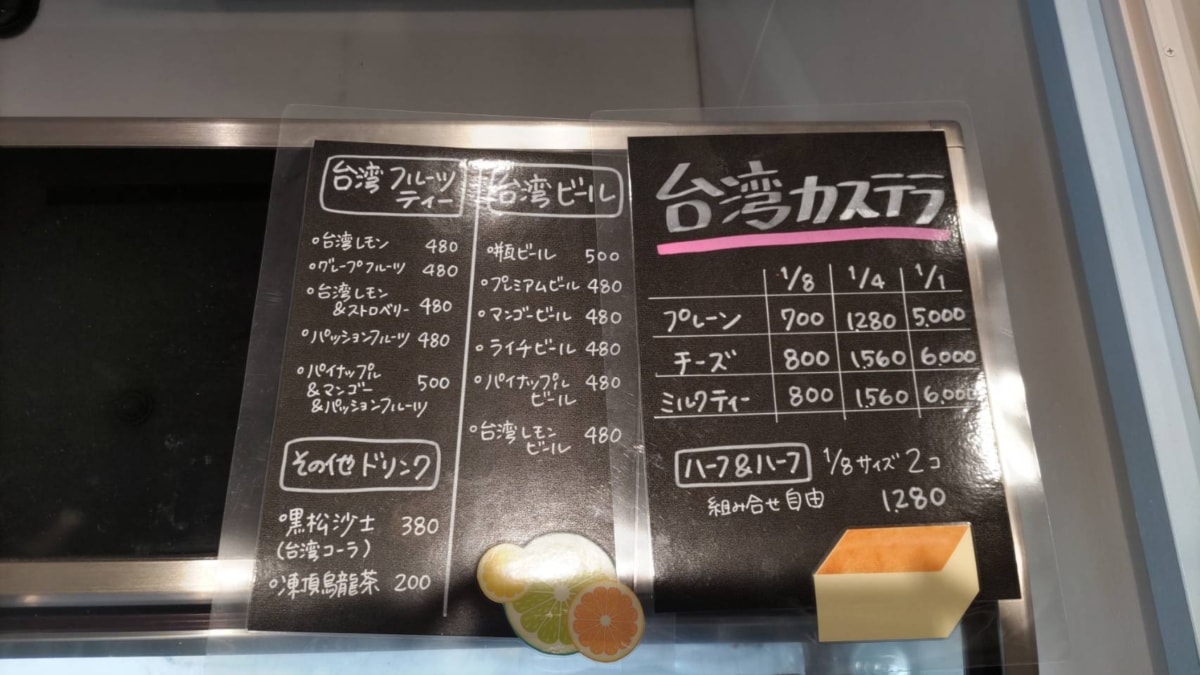 台湾フルーツ
ティー
°台湾レモン 480
°グレープフルーツ 480
°台湾レモン
&ストロベリー 480
°パッションフルーツ 480
°パイナップル
&マンゴー 500
&パッションフルーツ
その他ドリンク
°黒松沙士 380
(台湾コーラ)
°凍頂烏龍茶 200
台湾ビール
°瓶ビール 500
°プレミアムビール 480
°マンゴービール 480
°ライチビール 480
°パイナップル 480
ビール
°台湾レモン 480
ビール
台湾カステラ
1/8 1/4 1/1
プレーン 700 1,280 5,000
チーズ 800 1,560 6,000
ミルクティー 800 1,560 6,000
ハーフ&ハーフ 1/8サイズ2コ
組み合せ自由 1,280